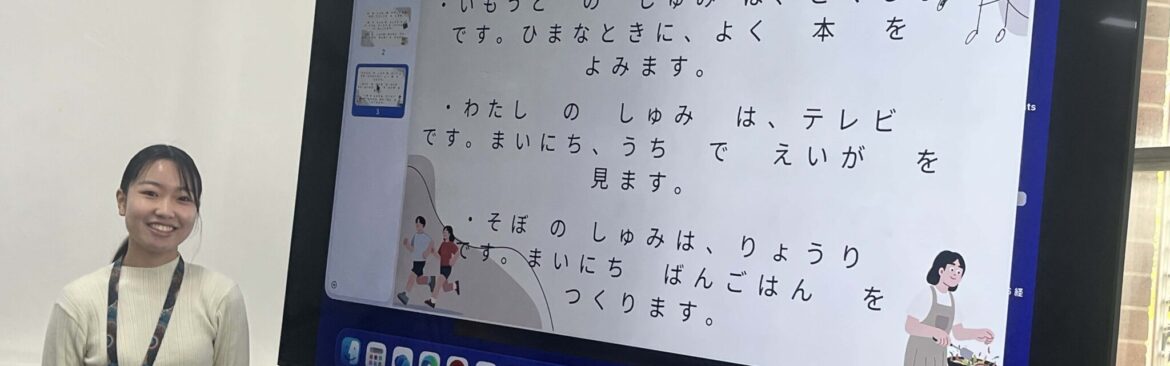 ・いもうと の しゅみ は、どくしょ
です。ひまなときに、よく 本 を
よみます。
・わたし の しゅみ は、テレビ
です。まいにち、うち で えいが を
見ます。
・そぼ の しゅみは、りょうり
です。まいにち ばんごはん を
つくります。
2
3